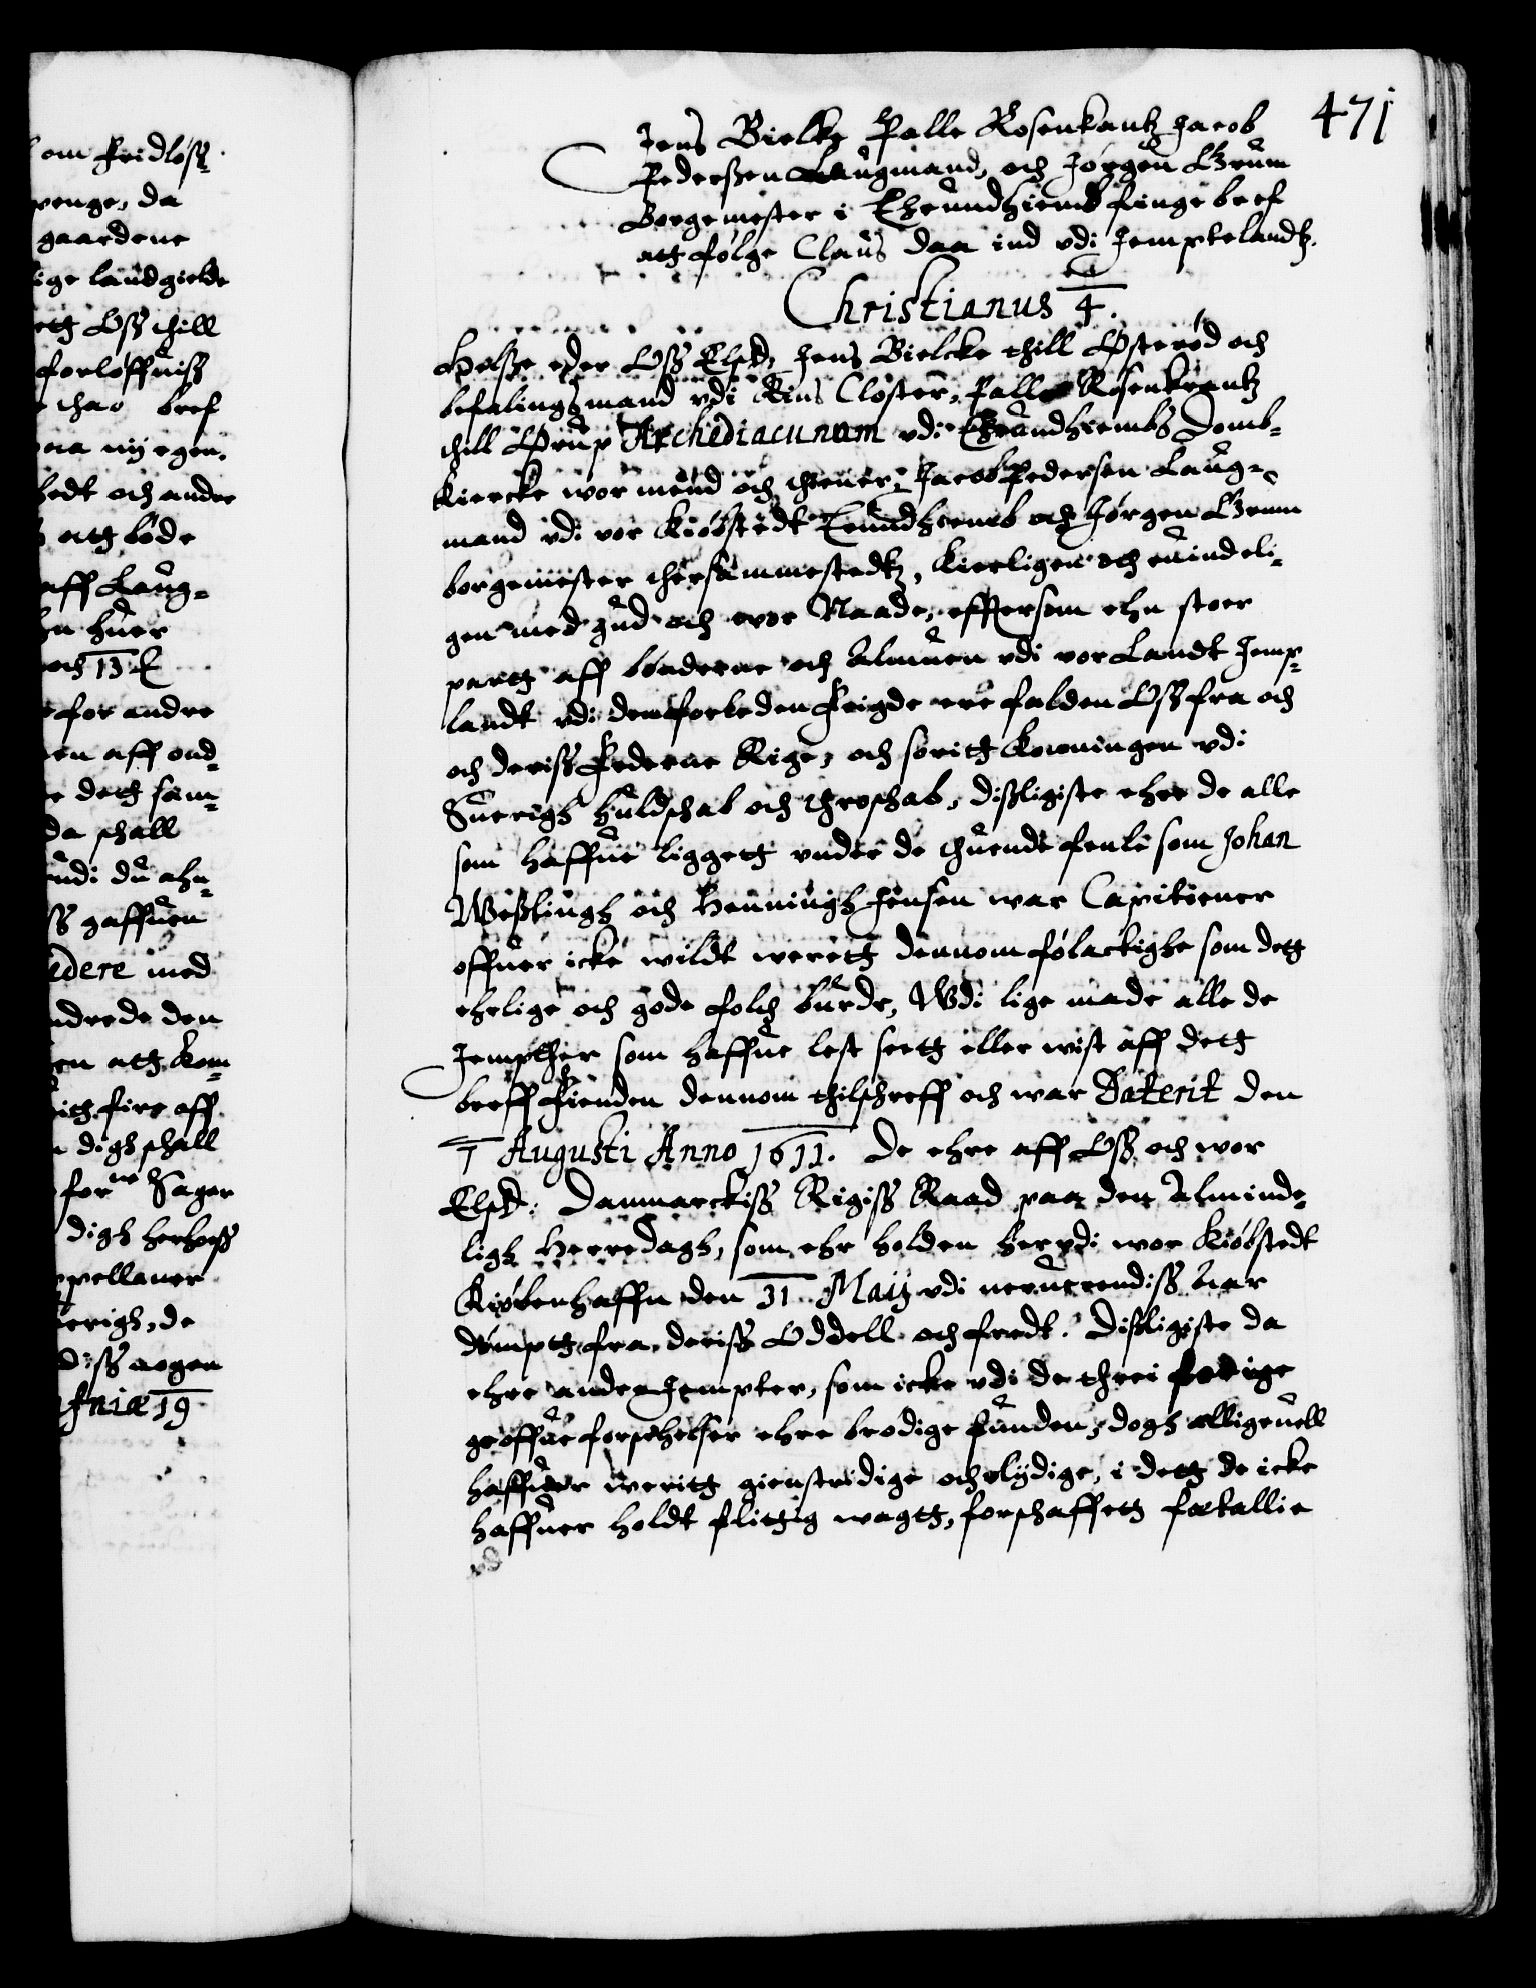 om Fridløsz
venge, da
gaardene
ige landgielde
ett Osz thill
forløffuisz
thao bref
aa nij egen
hedt och andre
att bøde
aff Laug-
hn huer
och 13 
for andre
en aff ond-
e dett sam-
da schall
udi du ahn-
sz gaffuen
edere med
ndrede den
en att kom-
fire aff
digh schall
forne Sager
digh herhosz
pellaner
erigh, de
disz nogen
fniæ 19
471
Jens Bielke Palle Rosenkantz Jacob
Pederszen Laugmand, och Jørgen Grum
Borgemester i Thrundhiemb finge bref
att følge Claus Daa ind vdi Jemptelandtz.
Christianus 4.
Helsze eder Osz Elsk: Jens Bielcke thill Østerød och
befalingsmand vdi Rins Closter, Palle Rosenkrantz
thill Ørup Archediacunum vdi Thrundhiembs Domb-
Kiercke wor mend och thiener, Jacob Pedersen Laug-
mand vdi vor Kiøbstedt Trundhiemb och Jørgen Grum
borgemester thersammestedtz, Kierligen och euindeli-
gen med gud och vor Naade, effttersom ehn stoer
partt aff bønderne och Almuen vdi vor Landt Jemp-
landt vdi den forleden Feigde ere falden Osz fra och
och derisz Federne Rige, och soritt Konningen vdi
Suerigh huldschab och throschab, diszligiste ehre de alle
som haffue liggett vnder de thuende fenle som Johan
Weszlingh och Henningh Jensen war Capitiener
offuer icke wildt werett dennom følacktighe som dett
ehrlige och gode folch burde, Wdi lige made alle de
Jempther som haffue lest seett eller wist aff dett
breff Fienden dennom thilschreff och war Daterit den
7 Augusti Anno 1611. De ehre aff Osz och wor
Elsk: Danmarckisz Rigisz Raad paa den Alminde-
ligh Herredagh, som ehr holden her vdi wor Kiøbstedt
Kiøbenhaffn den 31 Maij vdi neruerendisz Aar
dømptt fra derisz Oddell och fredt. Diszligiste da
ehre andre Jempter, som icke vdi de threi forige
groffue forsehelser ehre brødige funden, dogh alligeuell
haffuer weritt gienstridige och vlydige, i dett de icke
haffuer holdt flittig wagtt, forschaffett fætallie